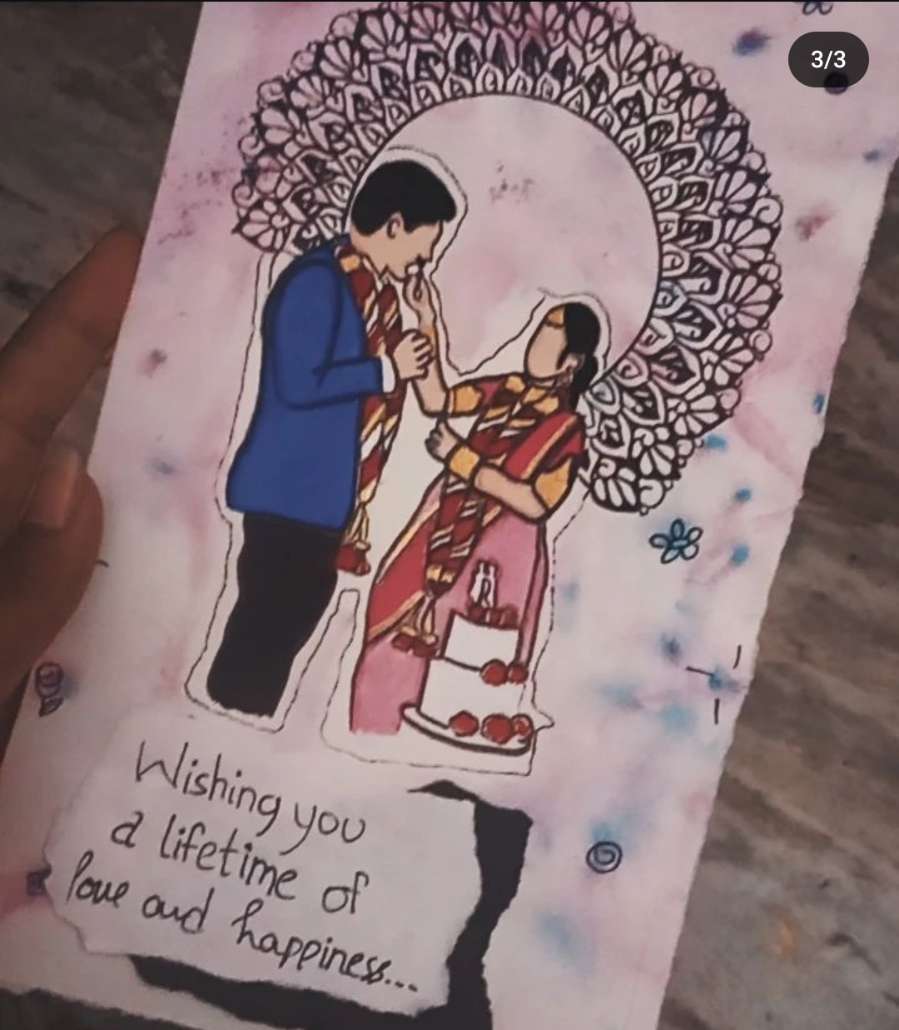 3/3
Wishing you
a lifetime of
love and happiness...